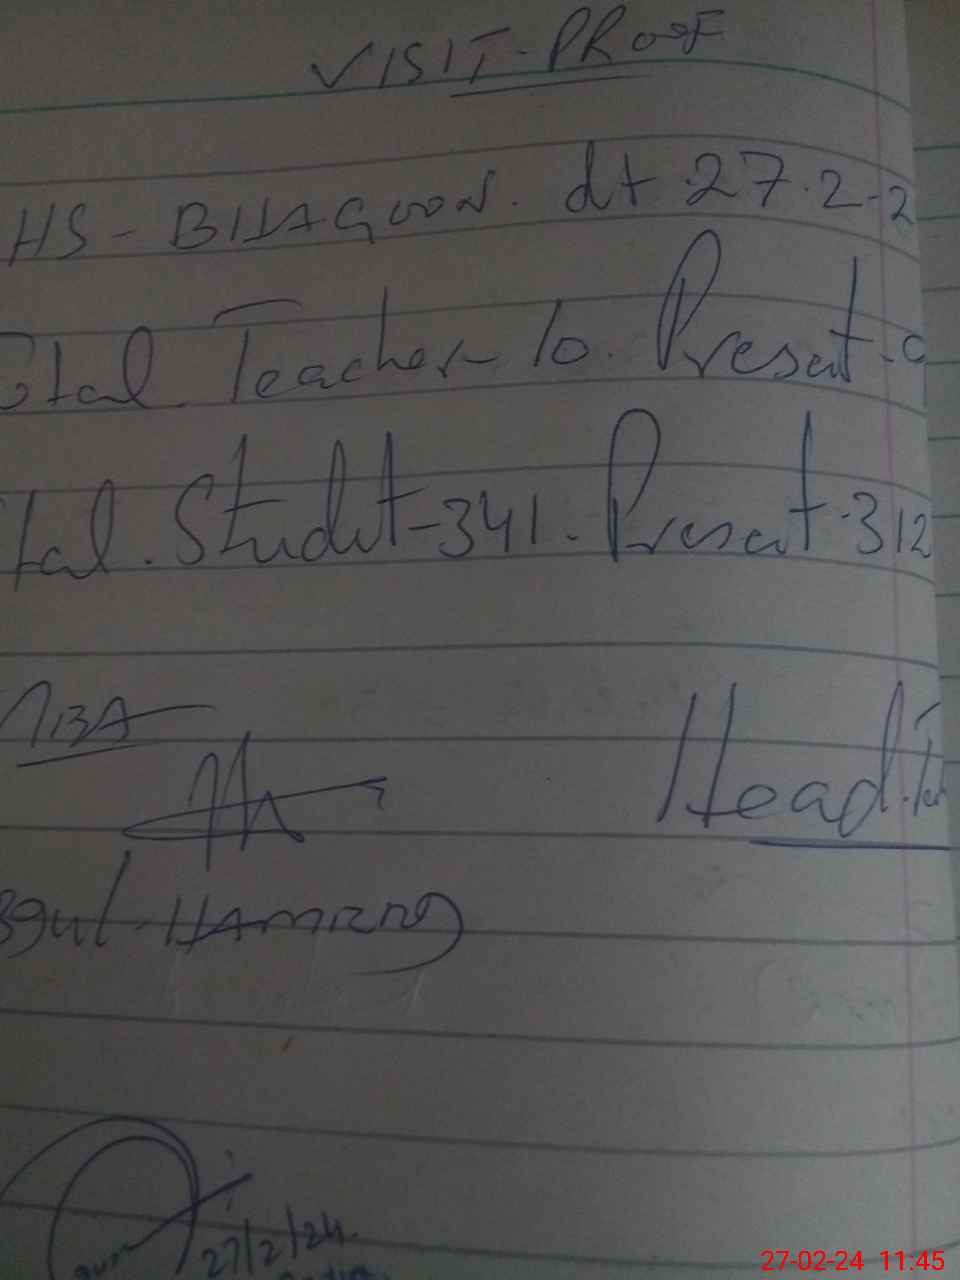 VISIT-PROOF
HS - BIJAGOON. dt 27.2-2
otal Teacher - 10. Present - 9
tal. Studet - 341. Present - 312
MBA
Head.
27/2/24
27-02-24 11:45